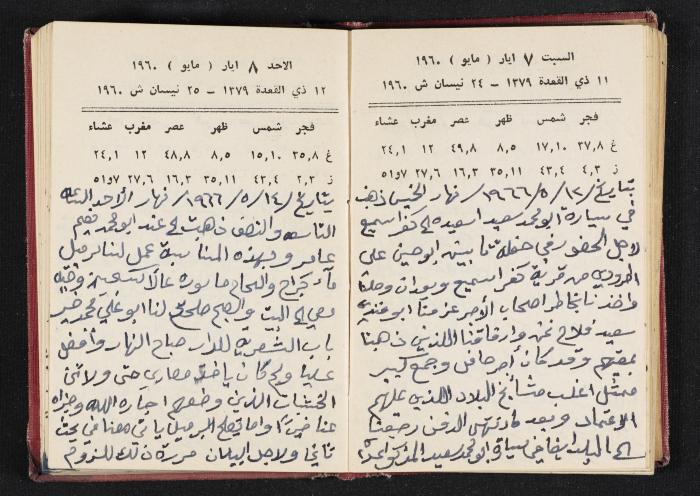 السبت ٧ ايار ( مايو ) ١٩٦٠
١١ ذي القعدة ١٣٧٩ – ٢٤ نيسان ش ١٩٦٠
فجر شمس ظهر عصر مغرب عشاء
غ ٣٧,٨ ١٧,١٠ ٨,٥ ٤٩,٨ ١٢ ٢٤,١
ز ٤,٣ ٤٣,٤ ٣٥,١١ ١٦,٣ ٢٧,٦ ٥١و٧
بتاريخ ١٢/٥/١٩٦٦ نهار الخميس ذهبت
في سيارة ابو محمد سعيد اسعيد الى كفر اسميع
لاجل الحضور في حفلة تأبين ابو حسين علي
من قرية كفر اسميع وبعد ان وصلنا
واخذنا بخاطر اصحاب الأجر عزمنا ابو
سعيد فلاح نحن وارفاقنا اللذين ذهبنا
بمعيتهم وقد كان أجر حافل وجمع كبير
ممثلي اغلب مشايخ البلاد اللذين عليهم
الاعتماد وبعد ان انتهى الدفن رجعنا
الى البلد ايضا في سيارة ابو محمد سعيد المذكور
الاحد ٨ ايار ( مايو ) ١٩٦٠
١٢ ذي القعدة ١٣٧٩ – ٢٥ نيسان ش ١٩٦٠
فجر شمس ظهر عصر مغرب عشاء
غ ٣٥,٨ ١٥,١٠ ٨,٥ ٤٨,٨ ١٢ ٢٤,١
ز ٢,٣ ٤٣,٤ ٣٥,١١ ١٦,٣ ٢٧,٦ ٥١و٧
بتاريخ ١٤/٥/١٩٦٦ نهار الأحد الساعه
التاسعه والنصف ذهبت الى عند ابو محمد
عامر وبهذه المناسبة عمل لنا برميل
ماء كراج واللحام
معي الى البيت والصبح صلح لنا ابو علي محمد خير
باب الشعريه للدار صباح النهار وأفضل
علينا ولم كان ياخذ مصاري حتى ولا ثمن
الخشبات الذي وضعهم اجاره الله وجزاه
عنا خيرًا واما البرميل يأتي معنا في بحث
ثاني ولاجل البيان حررت ذلك للزوم